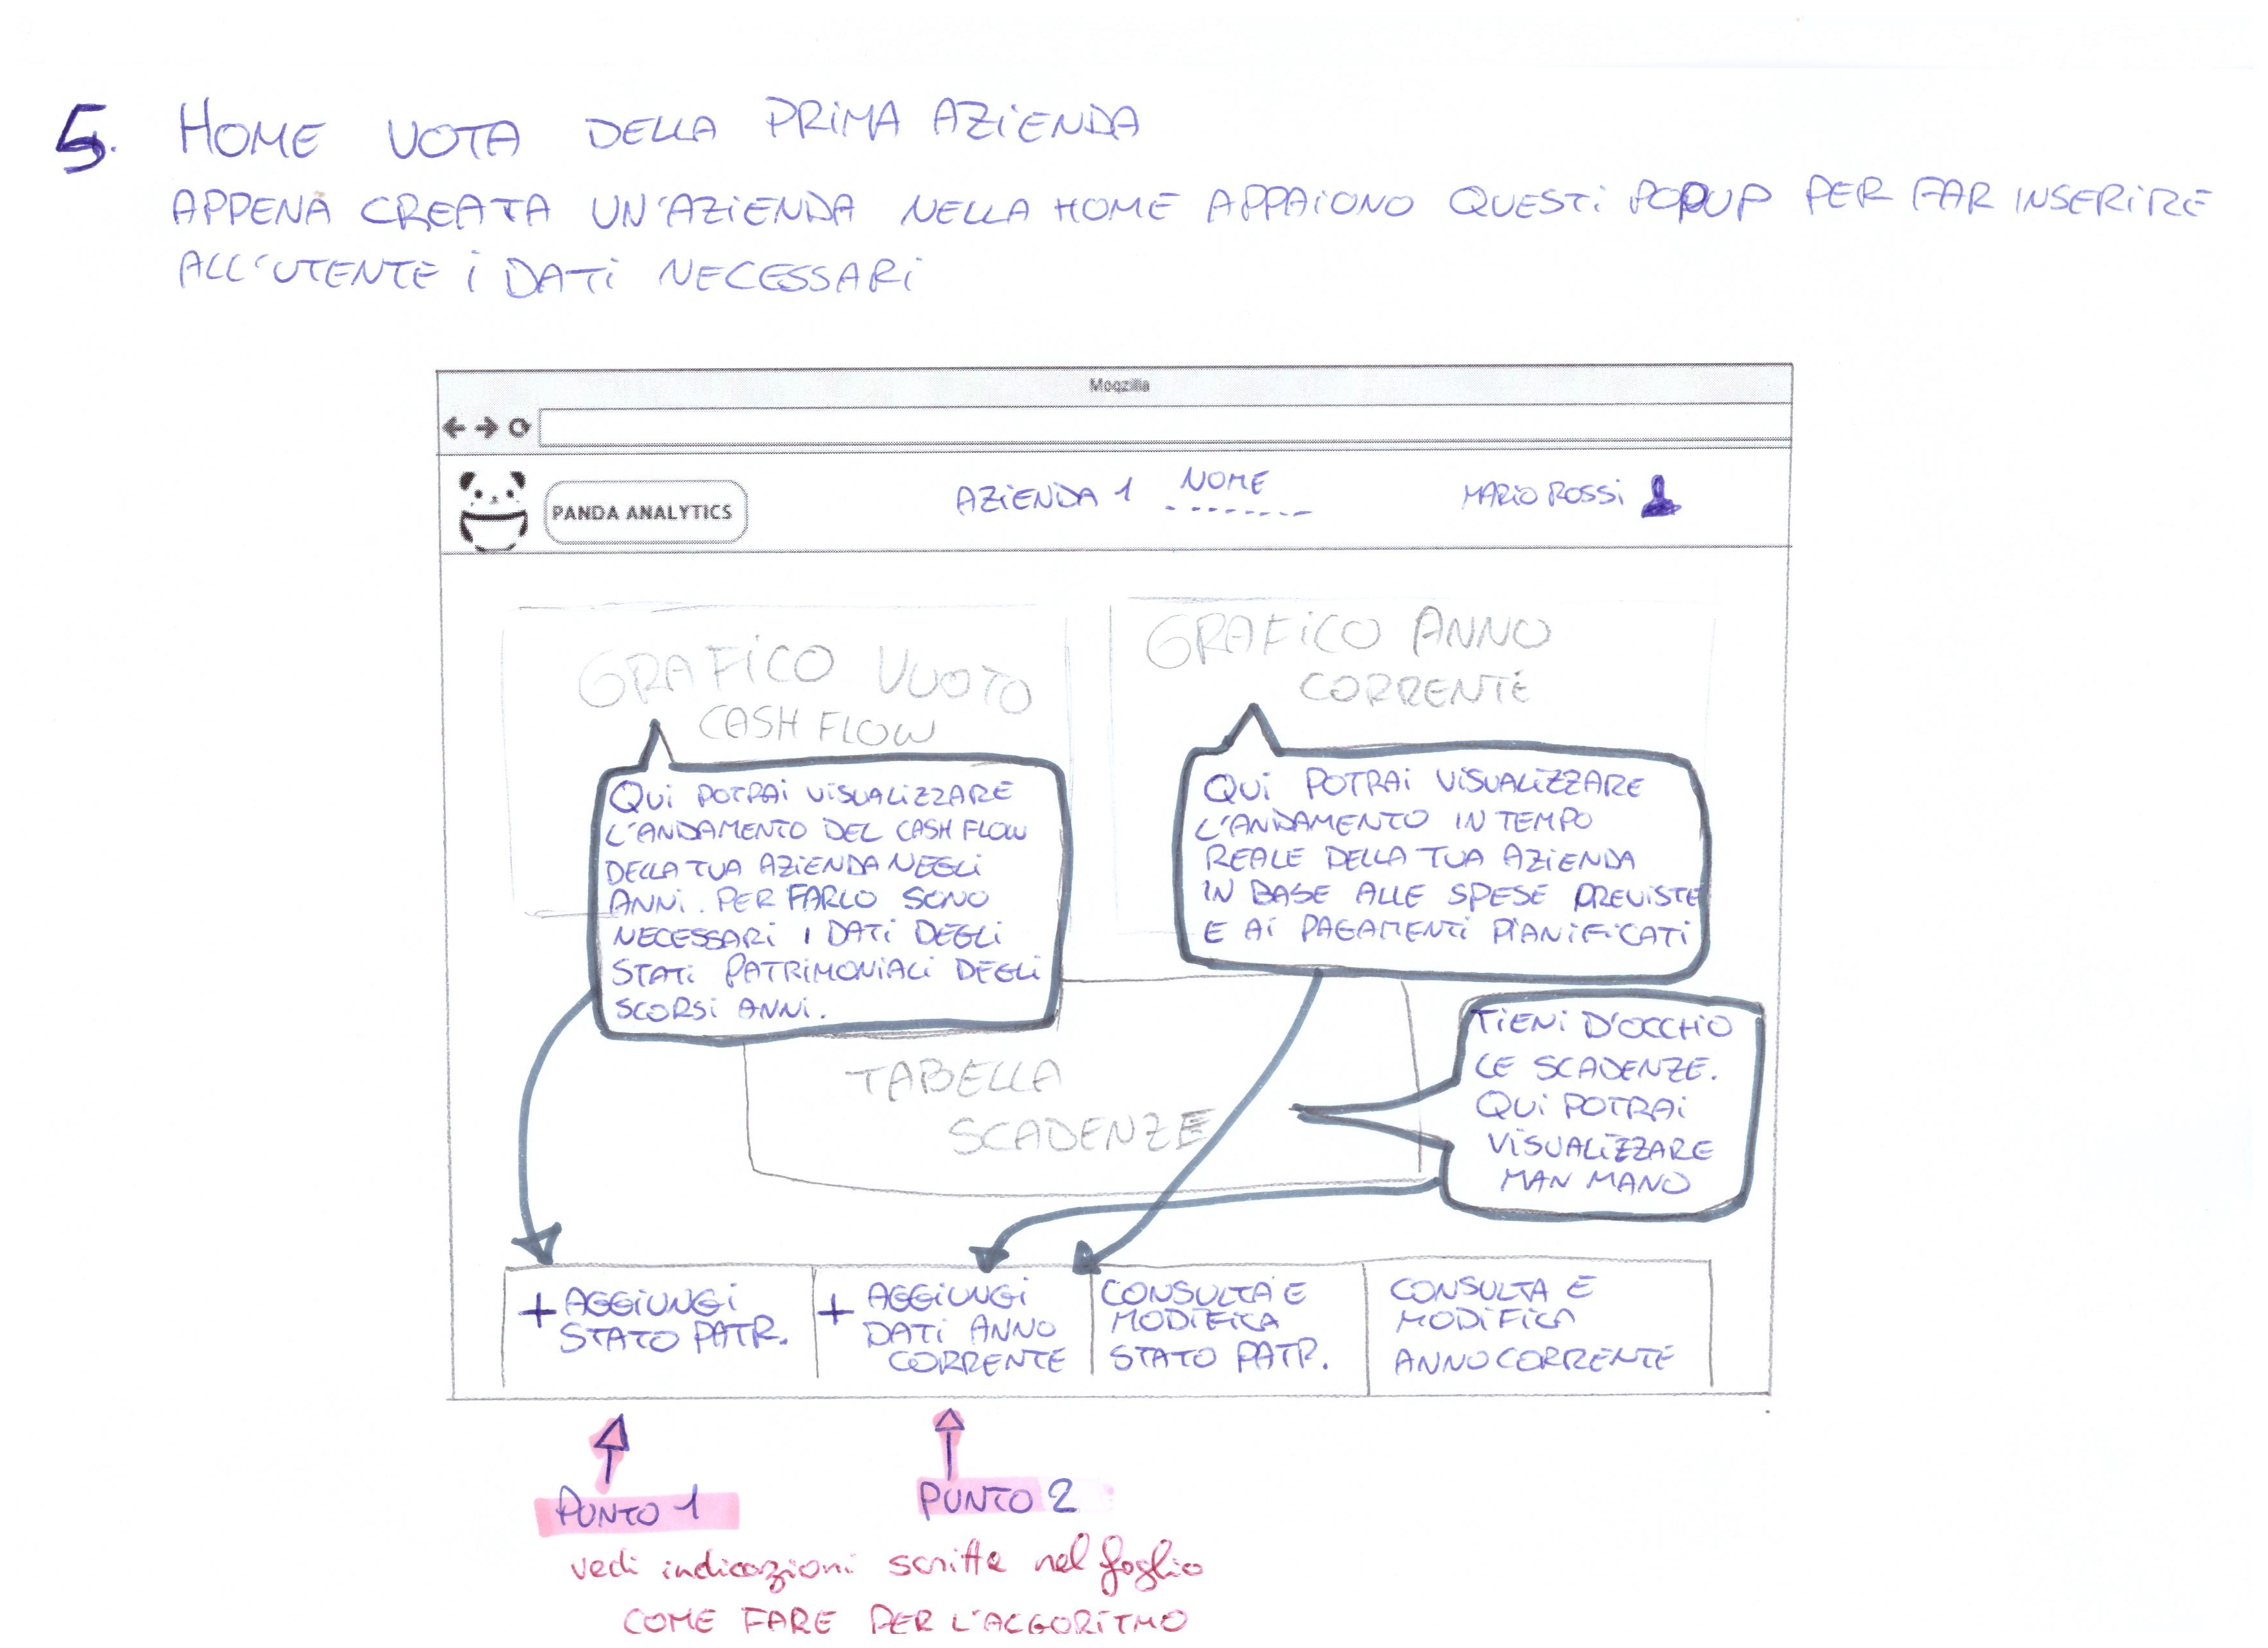 5. HOME VOTA DELLA PRIMA AZIENDA
APPENA CREATA UN'AZIENDA NELLA HOME APPAIONO QUESTI POPUP PER FAR INSERIRE
ALL'UTENTE I DATI NECESSARI
Moqzilla
PANDA ANALYTICS
AZIENDA 1 NOME
MARIO ROSSI
GRAFICO VUOTO
CASH FLOW
GRAFICO ANNO
CORRENTE
QUI POTRAI VISUALIZZARE
L'ANDAMENTO DEL CASH FLOW
DELLA TUA AZIENDA NEGLI
ANNI. PER FARLO SONO
NECESSARI I DATI DEGLI
STATI PATRIMONIALI DEGLI
SCORSI ANNI.
QUI POTRAI VISUALIZZARE
L'ANDAMENTO IN TEMPO
REALE DELLA TUA AZIENDA
IN BASE ALLE SPESE PREVISTE
E AI PAGAMENTI PIANIFICATI
TABELLA
SCADENZE
TIENI D'OCCHIO
LE SCADENZE.
QUI POTRAI
VISUALIZZARE
MAN MANO
+ AGGIUNGI
STATO PATR.
+ AGGIUNGI
DATI ANNO
CORRENTE
CONSULTA E
MODIFICA
STATO PATR.
CONSULTA E
MODIFICA
ANNO CORRENTE
PUNTO 1
PUNTO 2
vedi indicazioni scritte nel foglio
COME FARE PER L'ALGORITMO